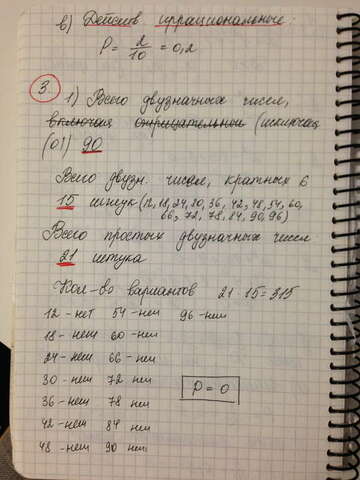 в) Действ. иррациональные:
P = 2/10 = 0,2
3.
1) Всего двузначных чисел,
включая отрицательное (исключая
(01) 90
Всего двузн. чисел, кратных 6
15 штук (12, 18, 24, 30, 36, 42, 48, 54, 60,
66, 72, 78, 84, 90, 96)
Всего простых двузначных чисел
21 штука
Кол-во вариантов 21·15=315
12 - нет 54 - нет 96 - нет
18 - нет 60 - нет
24 - нет 66 - нет
30 - нет 72 нет
36 - нет 78 нет P = 0
42 - нет 84 нет
48 - нет 90 нет